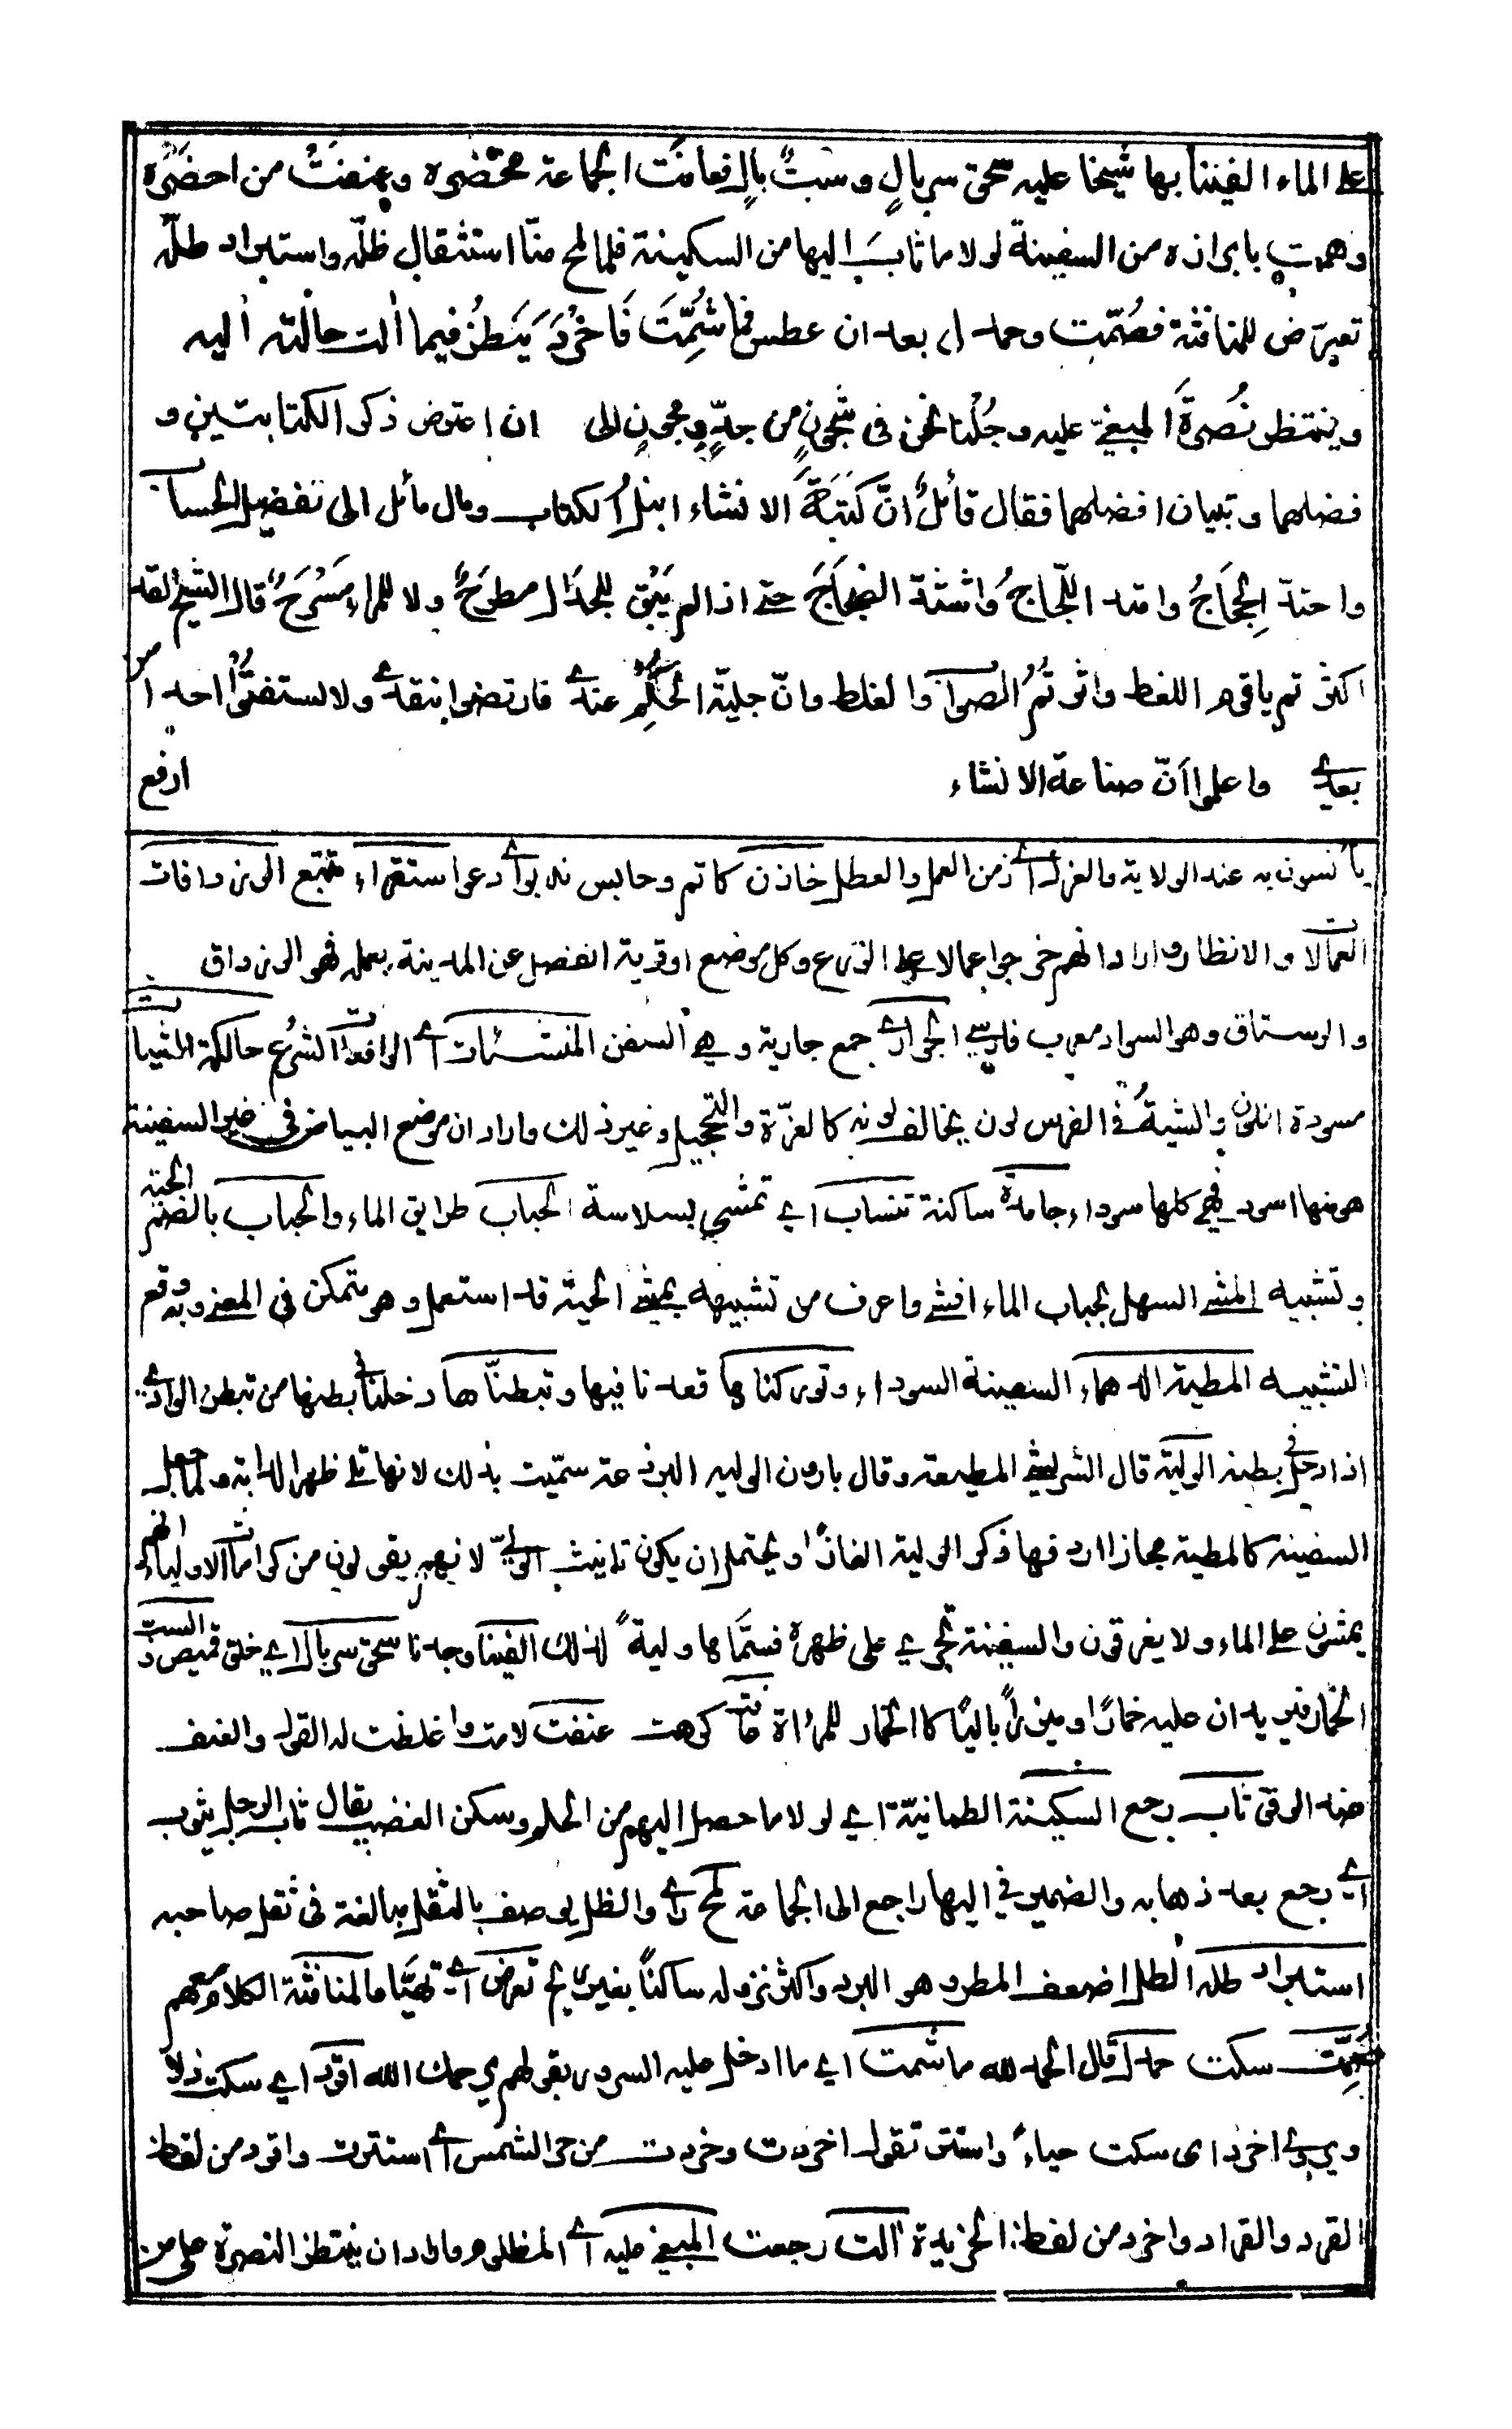 على الماء الفينا بها شيخا عليه سحق سربالٍ وسبٌّ بالٍ فعافت الجماعة محضره وعنفت من احضره
وهمت بابرازه من السفينة لولا ما ثابَ اليها من السكينة فلما لمح منّا استثقال ظلّه واستبراد طلّه
تعرّض للمنافثة فصُمّت وحمدل بعد ان عطس فما شُمِّتَ فَاَخْرَدَ يَنظرُ فيما اٰلت حالته اليه
وينتظر نُصرةَ المبغيّ عليه وجُلنا نحن في شجونٍ من جدٍّ ومجونٍ الى ان اعترض ذكر الكتابتين و
فضلهما وتبيان افضلهما فقال قائلٌ انّ كَتَبَةَ الانشاء انبلُ الكتاب ومال مائل الى تفضيل الحساب
واحتد الحِجَاجُ وامتد اللّجاجُ واشتد الضجاج حتى اذا لم يَبْق للجدال مطرَحٌ ولا للمراء مَسْرَحٌ قال الشيخ لقد
اكثرتم يا قوم اللغط واثرتمُ الصواب والغلط وانّ جليّة الحُكْمِ عندي فارتضوا بنقدي ولا تستفتوا احدا من
بعدي واعلموا اَنّ صناعة الانشاء ارفع
يأنسون به عند الولاية والعزل اي زمن العمل والعطل خازن كاتم وحابس ندبوا اي دعوا استقراء تتبع الزرداقات
العمالات والانظار وارادانهم خرجوا عمالا على الزرع وكل موضع او قرية انفصل عن المدينة بعمله فهو الرزداق
والرستاق وهو السواد معرب فارسي الجواري جمع جارية وهي السفن المنشئات اي الرافعات الشرُع حالكة الشيات
مسودة اللون والشيةُ في الفرس لون يخالف لونه كالغرّة والتحجيل وغير ذلك واراد ان موضع البياض في غير السفينة
هو منها اسود فهي كلها سوداء جامدة ساكنة تنساب اي تمشي بسلاسة الحباب طرايق الماء والحباب بالضم الحية
وتشبيه المشي السهل بحباب الماء افشى واعرف من تشبيهه بمشي الحية قد استعمل وهو متمكن في المعنى وبه وقع
التشبيه المطية الدهماء السفينة السوداء وتوركناها قعدنا فيها وتبطنّاها دخلنا في بطنها من تبطن الوادي
اذا دخل في بطنه الولية قال الشريشي المطيعة وقال بارون الوليه البرذعة سمّيت بذلك لانها تلي ظهر الدابة ولما جعل
السفينة كالمطية مجازا اردفها ذكر الولية الغازًا ويحتمل ان يكون تانيث الوليّ لانهم يقولون من كرامات الاولياء انهم
يمشون على الماء ولا يغرقون والسفينة تجري على ظهره فسمّاها وليةً لذلك الفينا وجدنا سحق سربال اي خلق قميص السبّ
الخمار فيريد ان عليه خمارًا ومئزرًا باليًا كالخمار للمرأة عافت كرهت عنفت لامت واغلظت له القول والعنف
ضد الرفق ثاب رجع السكينة الطمانيّة اي لولا ما حصل اليهم من الحلم وسكن الغضب يقال ثاب الرجل يثوب
اي رجع بعد ذهابه والضمير في اليها راجع الى الجماعة لمح راي والظل يوصف بالثقل مبالغة في ثقل صاحبه
استبراد طله الطل اضعف المطر وهو البرد واكثر نزوله ساكنًا بغير ريح تعرض اي تهيّا المنافثة الكلام معهم
صُمِّتَ سكت حمدل قال الحمد لله ما شمت اي ما ادخل عليه السرور بقولهم يرحمك الله اقرد اي سكت ذلا
ويروي اخرد اى سكت حياءً واستتر تقول اخردت وخردت من حر الشمس اي استترت واقرد من لفظ
القرد والقراد واخرد من لفظ الخريدة اٰلت رجعت المبغي عليه اي المظلوم واراد ان ينتظر النصرة على من